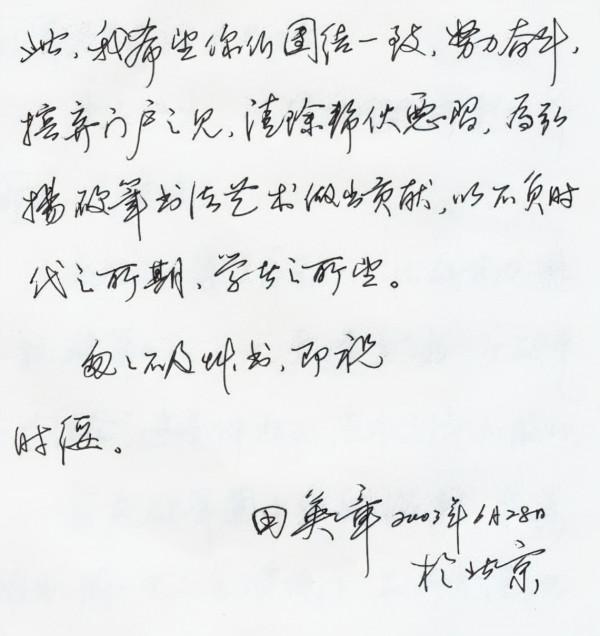 此，我希望你们团结一致，努力奋斗，
摈弃门户之见，清除帮伙恶习，为弘
扬硬笔书法艺术做出贡献，以不负时
代之所期，学长之所望。
匆匆不及草书，即祝
时绥。
田英章 2003年6月28日
于北京